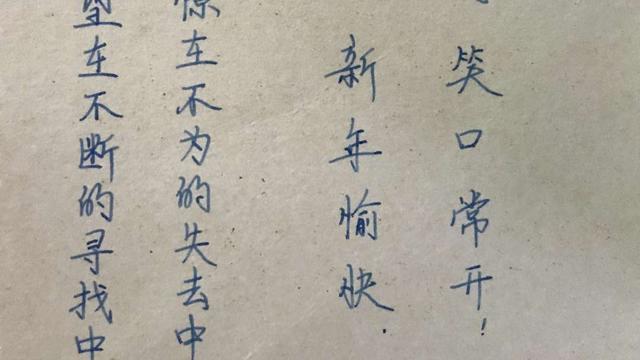 笑口常开!
新年愉快.
惊在不为的失去中
望在不断的寻找中